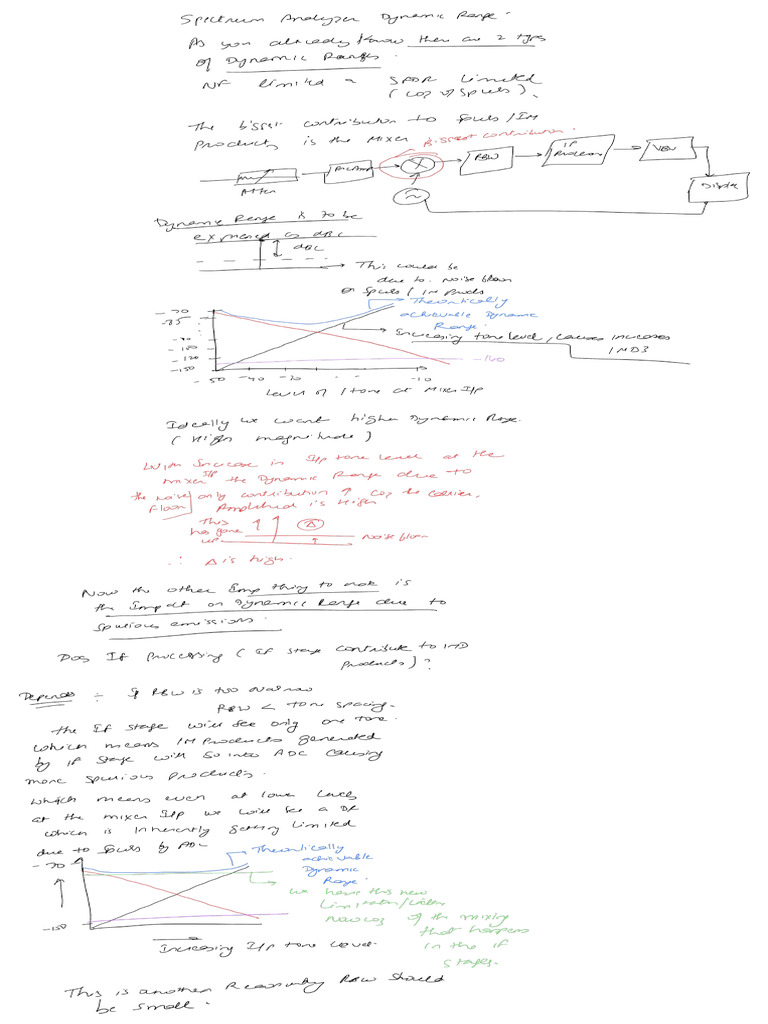 Spectrum Analyzer Dynamic Range.
As you already know there are 2 types
of Dynamic Ranges.
NF limited & SFDR Limited
(coz of spurs).
The biggest contribution to spurs/IM
Products is the Mixer Biggest contribution.
Atten
PreAmp
RBW
IF
Processor
VBW
Display
Dynamic Range is to be
expressed as dBc
dBc
This could be
due to Noise floor
or Spurs / IM Prods
Theoretically
achievable Dynamic
Range.
Increasing tone level, causes increases
IMD3
-70
-85
-90
-120
-150
-160
-50 -40 -20 - - -10
Level of 1 tone at Mixer I/P
Ideally we want higher Dynamic Range.
(High magnitude)
With Increase in I/P tone level at the
mixer I/P the Dynamic Range due to
the noise only contribution ↑ coz the carrier
Floor Amplitude is High
This
has gone
up
Δ
Noise floor
∴ Δ is high.
Now the other Imp thing to note is
the Impact on Dynamic Range due to
Spurious emissions.
Does IF Processing (IF stage contribute to IMD
Products)?
Depends ÷ If RBW is too narrow
RBW < tone spacing.
the IF stage will see only one tone.
which means IM Products generated
by IF stage will go into ADC causing
more spurious products.
which means even at lower levels
at the mixer I/P we will see a DR
which is Inherently getting limited
due to spurs by ADC
-70
-150
Theoretically
achievable
Dynamic
Range.
we have this new
limitation/
Now coz of the mixing
that happens
in the IF
stages.
Increasing I/P tone level.
This is another Reason why RBW should
be small.